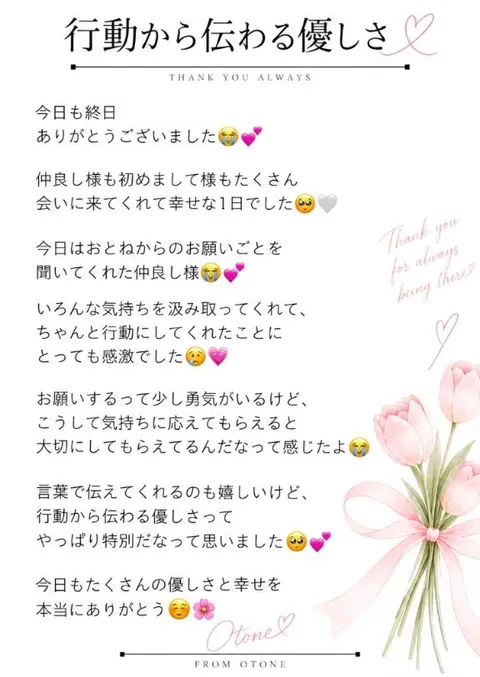 行動から伝わる優しさ
THANK YOU ALWAYS
今日も終日
ありがとうございました😭💕
仲良し様も初めまして様もたくさん
会いに来てくれて幸せな1日でした🥺🤍
今日はおとねからのお願いごとを
聞いてくれた仲良し様😭💕
いろんな気持ちを汲み取ってくれて、
ちゃんと行動にしてくれたことに
とっても感激でした😢💗
お願いするって少し勇気がいるけど、
こうして気持ちに応えてもらえると
大切にしてもらえてるんだなって感じたよ😭
言葉で伝えてくれるのも嬉しいけど、
行動から伝わる優しさって
やっぱり特別だなって思いました🥺💕
今日もたくさんの優しさと幸せを
本当にありがとう☺️🌸
Thank you
for always
being there
Otone
FROM OTONE